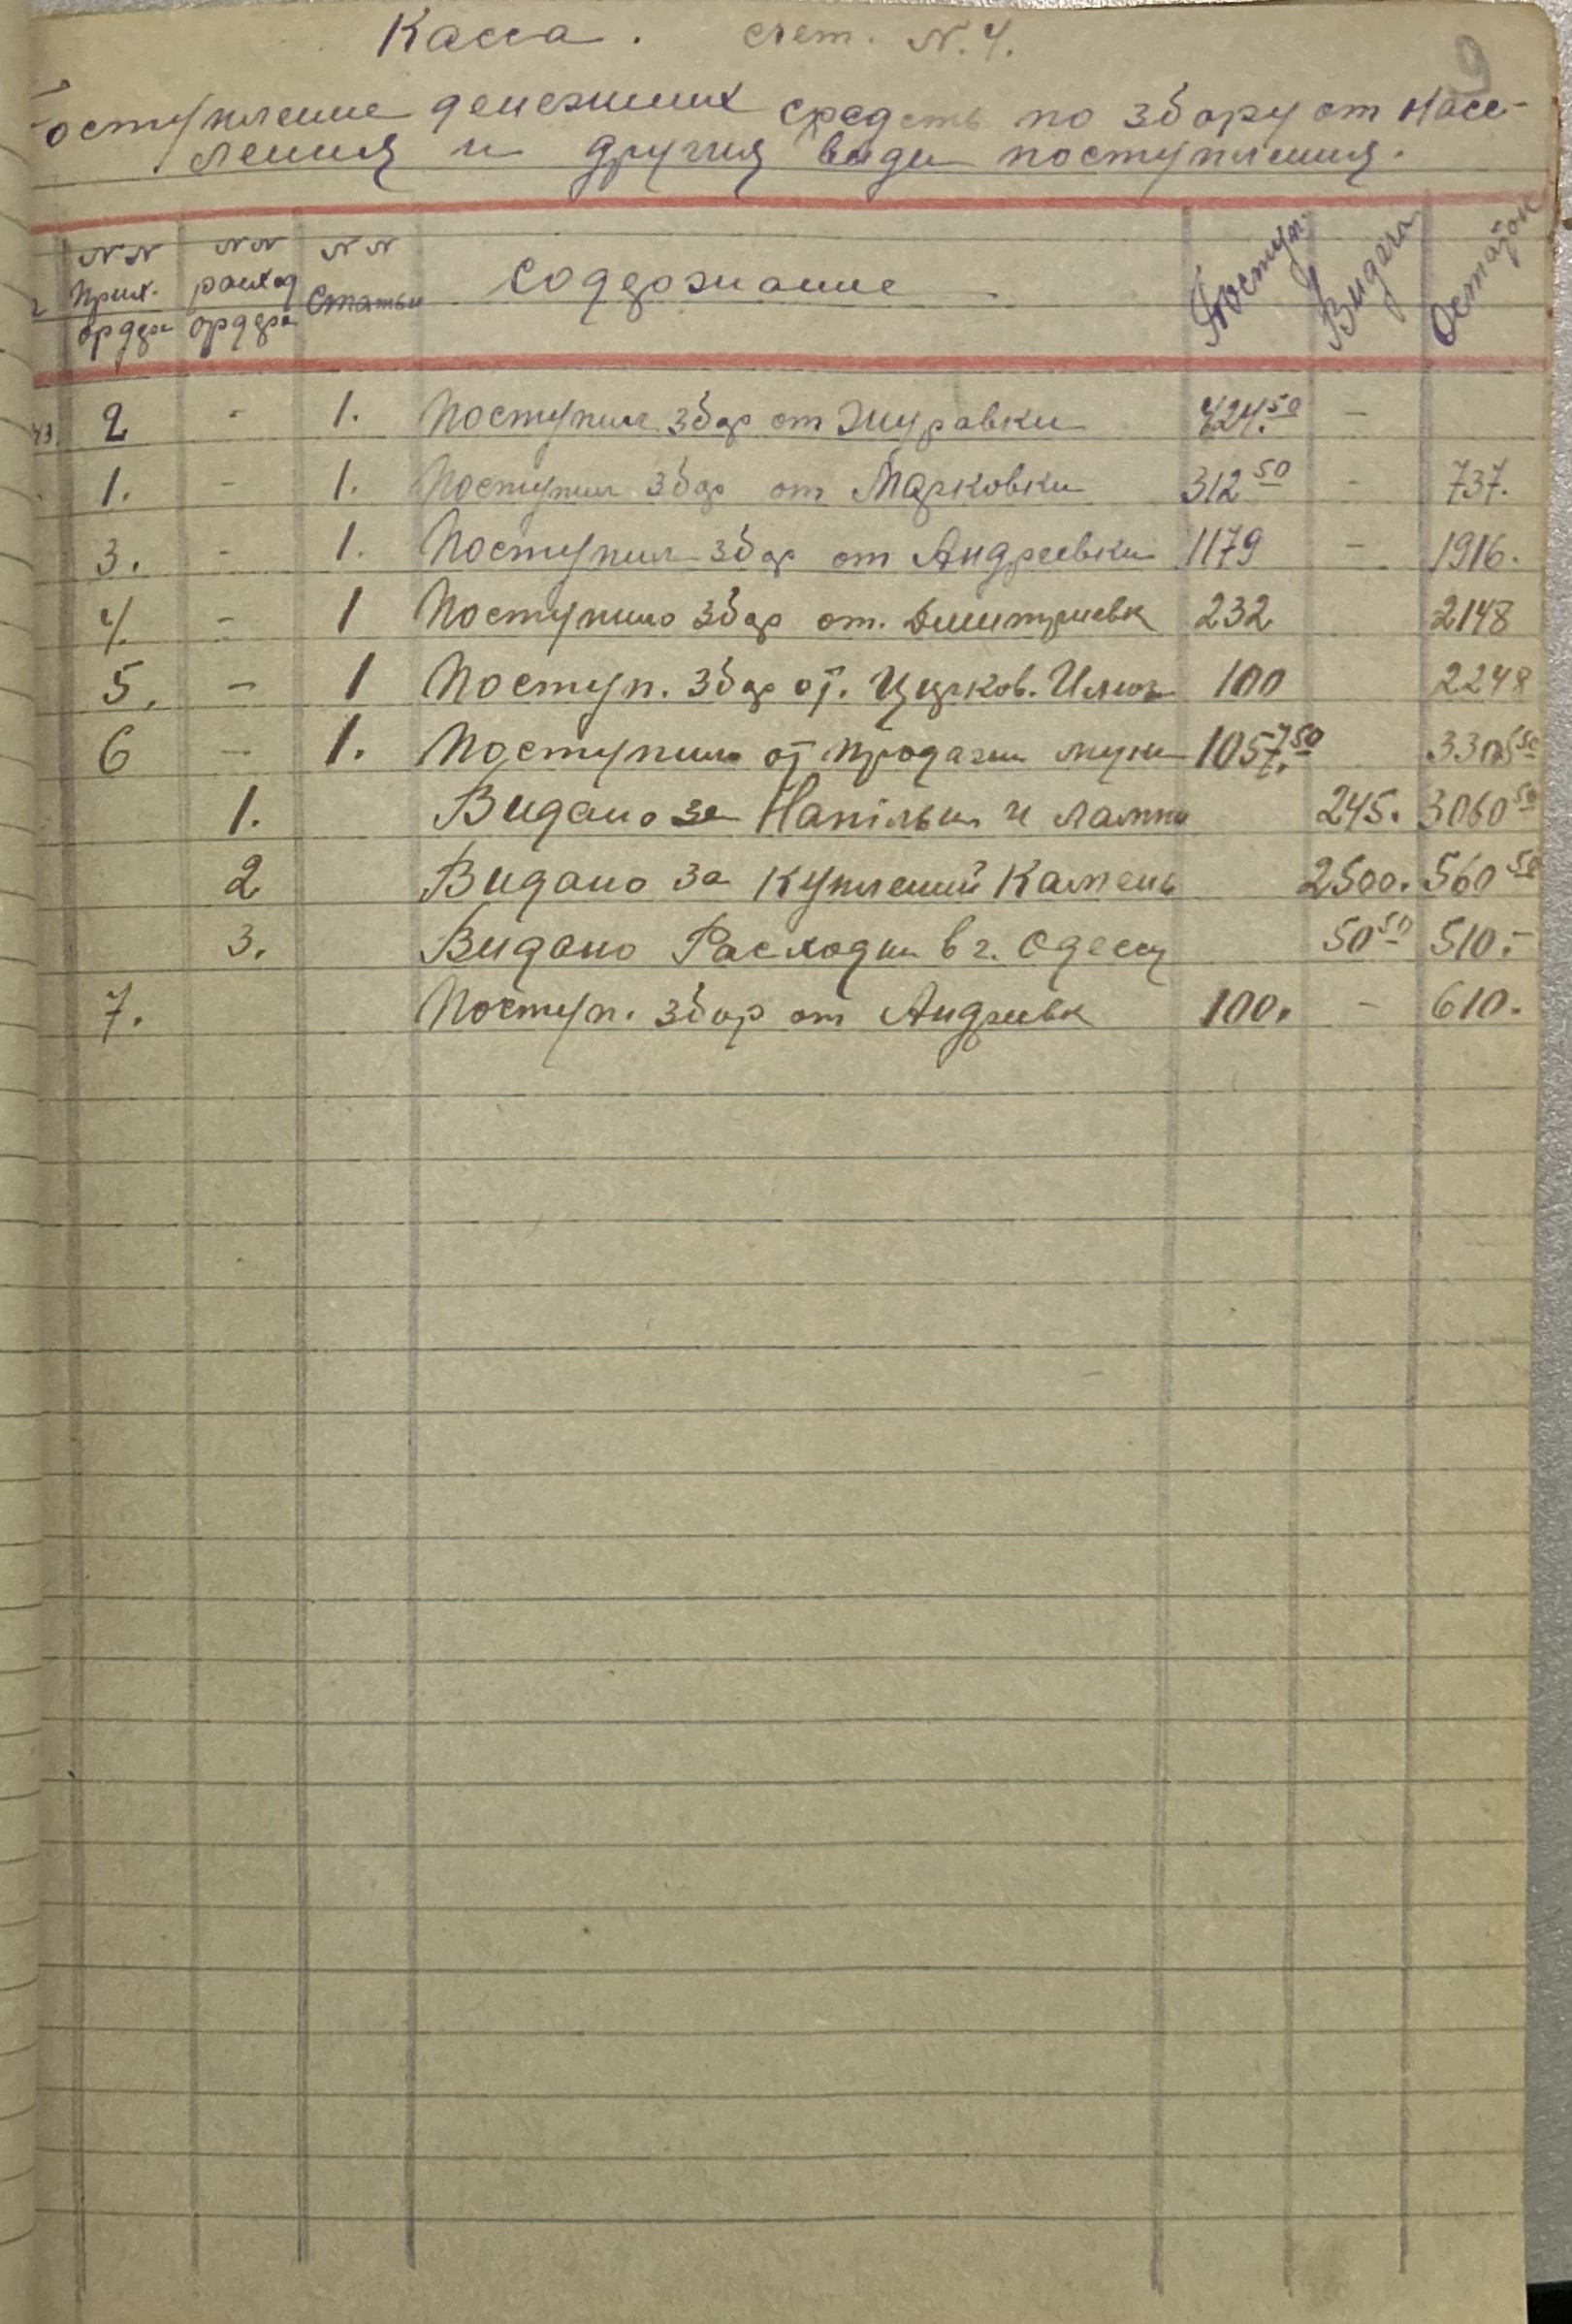 Касса. счет. N. 4.
9
Поступление денежних средств по збору от Насе-
ления и другия види поступления.
NN прих. ордера NN расход ордера NN статьи Содержание Поступл. Видача Остаток
2 - 1. Поступил збор от Журавки 424.50 -
1. - 1. Поступил збор от Марковки 312 50 - 737.
3. - 1. Поступил збор от Андреевки 1179 - 1916.
4. - 1 Поступило збор от. Дмитриевк 232 2148
5. - 1 Поступ. збор от. Церков. 100 2248
6 - 1. Поступило от продажи муки 1057.50 3305 50
1. Видано за Напільки и лампи 245. 3060 50
2 Видано за Куплений Камень 2500. 560 50
3. Видано Расходи в г. Одессу 50 50 510.-
7. Поступ. збор от Андреевк 100. - 610.